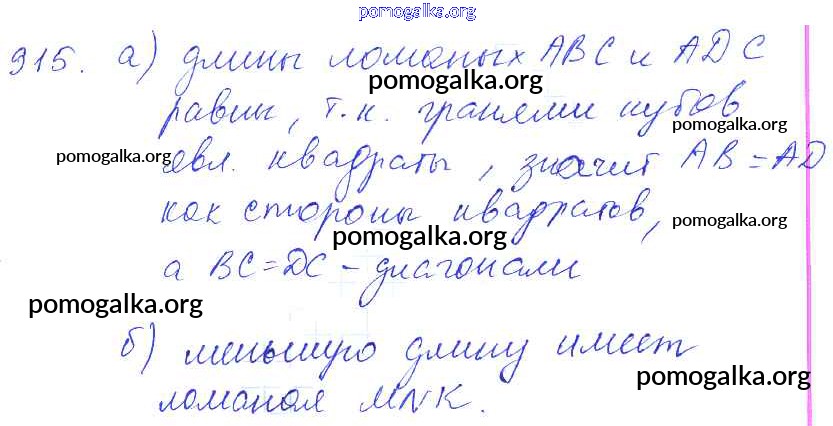 pomogalka.org
915. а) длины ломаных АВС и АDС
pomogalka.org
равны, т.к. гранями кубов
pomogalka.org
pomogalka.org
явл. квадраты, значит АВ = АD
как стороны квадратов,
pomogalka.org
pomogalka.org
а ВС = DС – диагонали
pomogalka.org
б) меньшую длину имеет
pomogalka.org
ломаная MNK.